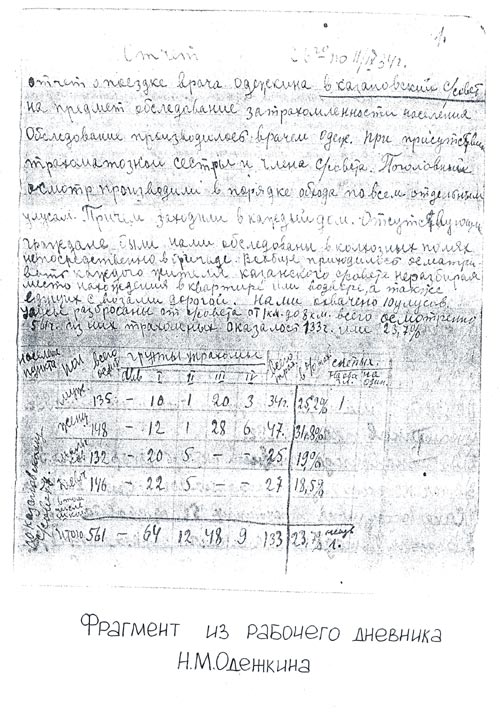 1.
Отчет с 6 го по 11/IV 34 г.
отчет о поездке врача одежкина в казановский с/совет
на предмет обследование затрахомленности населения
Обследование производилось врачем одеж. при присутствии
трахоматозной сестры и члена с/совета. Поголовный
осмотр производили в порядке обхода по всем отдельным
улусам. Причем заходили в каждый дом. Отсутствующ
граждане были нами обследованы в колхозных полях
непосредственно в бригаде. Вообще приходилось осматри
вать каждого жителя казанского с/совета неразбирая
место нахождения в квартире или во дворе, а также
едущих с возами дорогой. Нами охвачено 10 улусов
разбросаны от с/совета от 1 км. до 8 км. всего осмотренно
561ч. из них трахомных оказалось 133 ч. или 23,7%
пункта пол всего группы трахомы всего в % слепых
I II III IV на один.
муж. 135 – 10 1 20 3 34 ч. 25,2% 1.
женщ 148 – 12 1 28 6 47. 31,8%
132 – 20 5 – – 25 19%
146 – 22 5 – – 27 18,5%
том числе
Итого 561 – 64 12 48 9 133 23,7% 1.
Фрагмент из рабочего дневника
Н.М.Одежкина